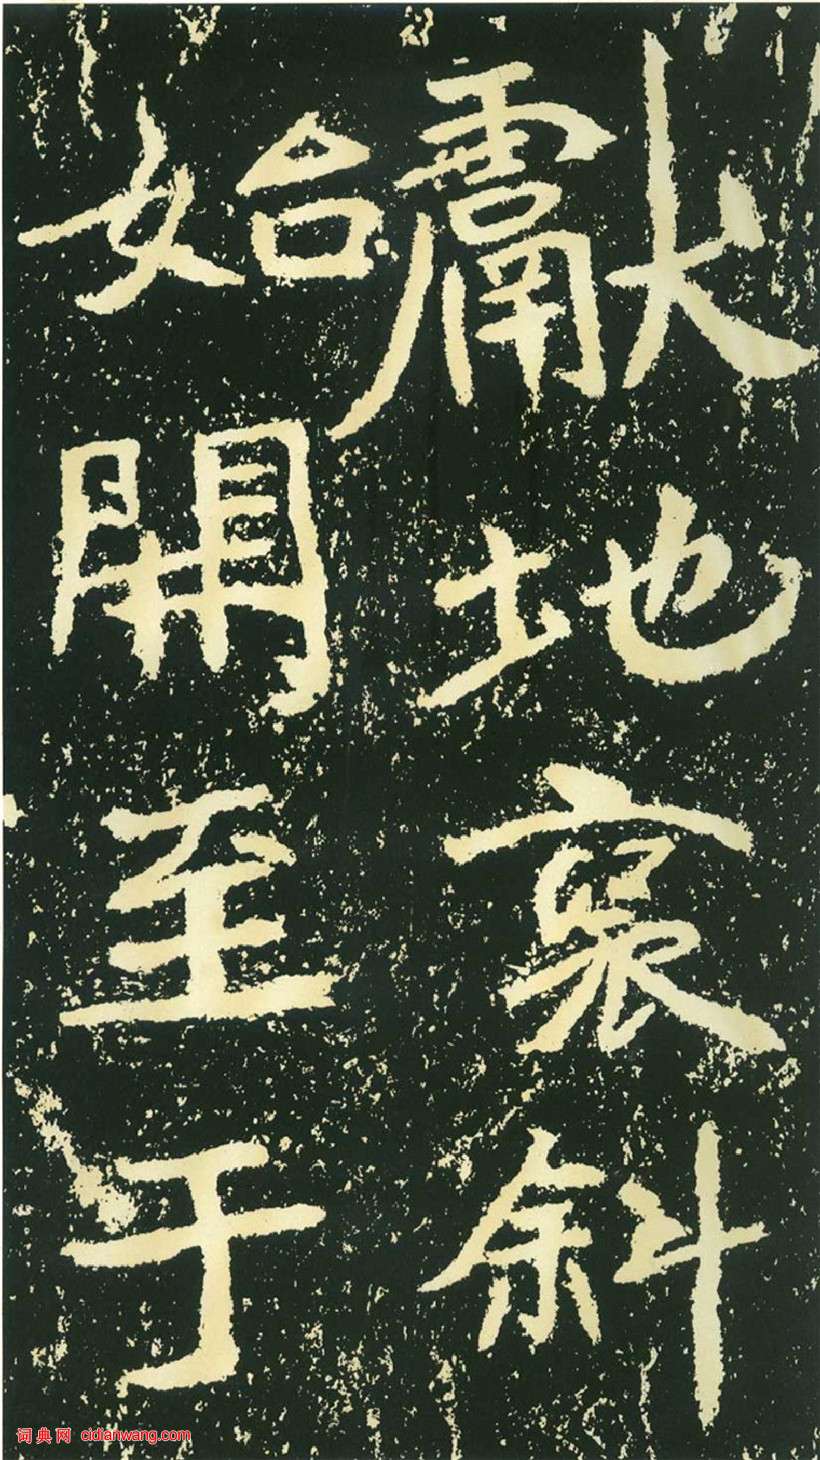 獻地襃斜
始開至于
词典网 cidianwang.com